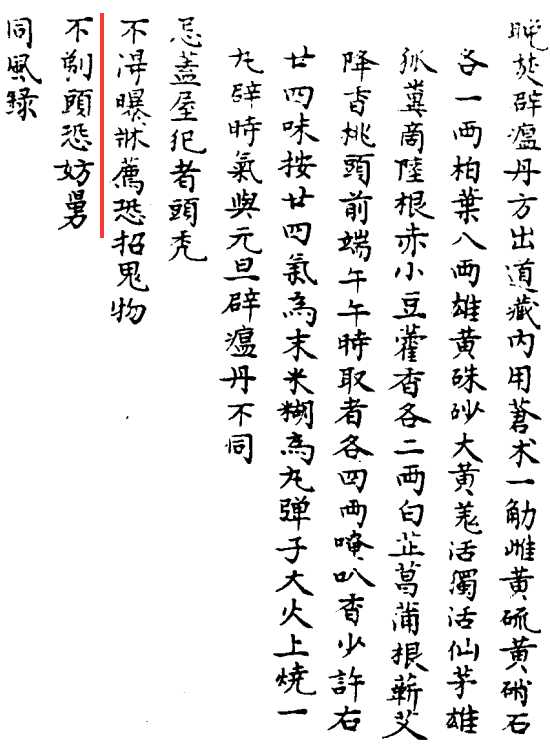 晚焚辟瘟丹方出道藏内用蒼术一觔雌黄硫黄硝石
各一兩柏葉八兩雄黄硃砂大黄羗活獨活仙茅雄
狐糞商陸根赤小豆藿香各二兩白芷菖蒲根蘄艾
降香桃頭前端午午時取者各四兩唵叭香少許右
廿四味按廿四氣為末米糊為丸弹子大火上燒一
丸辟時氣與元旦辟瘟丹不同
忌蓋屋犯者頭秃
不淂曝牀薦恐招鬼物
不剃頭恐妨舅
同風録